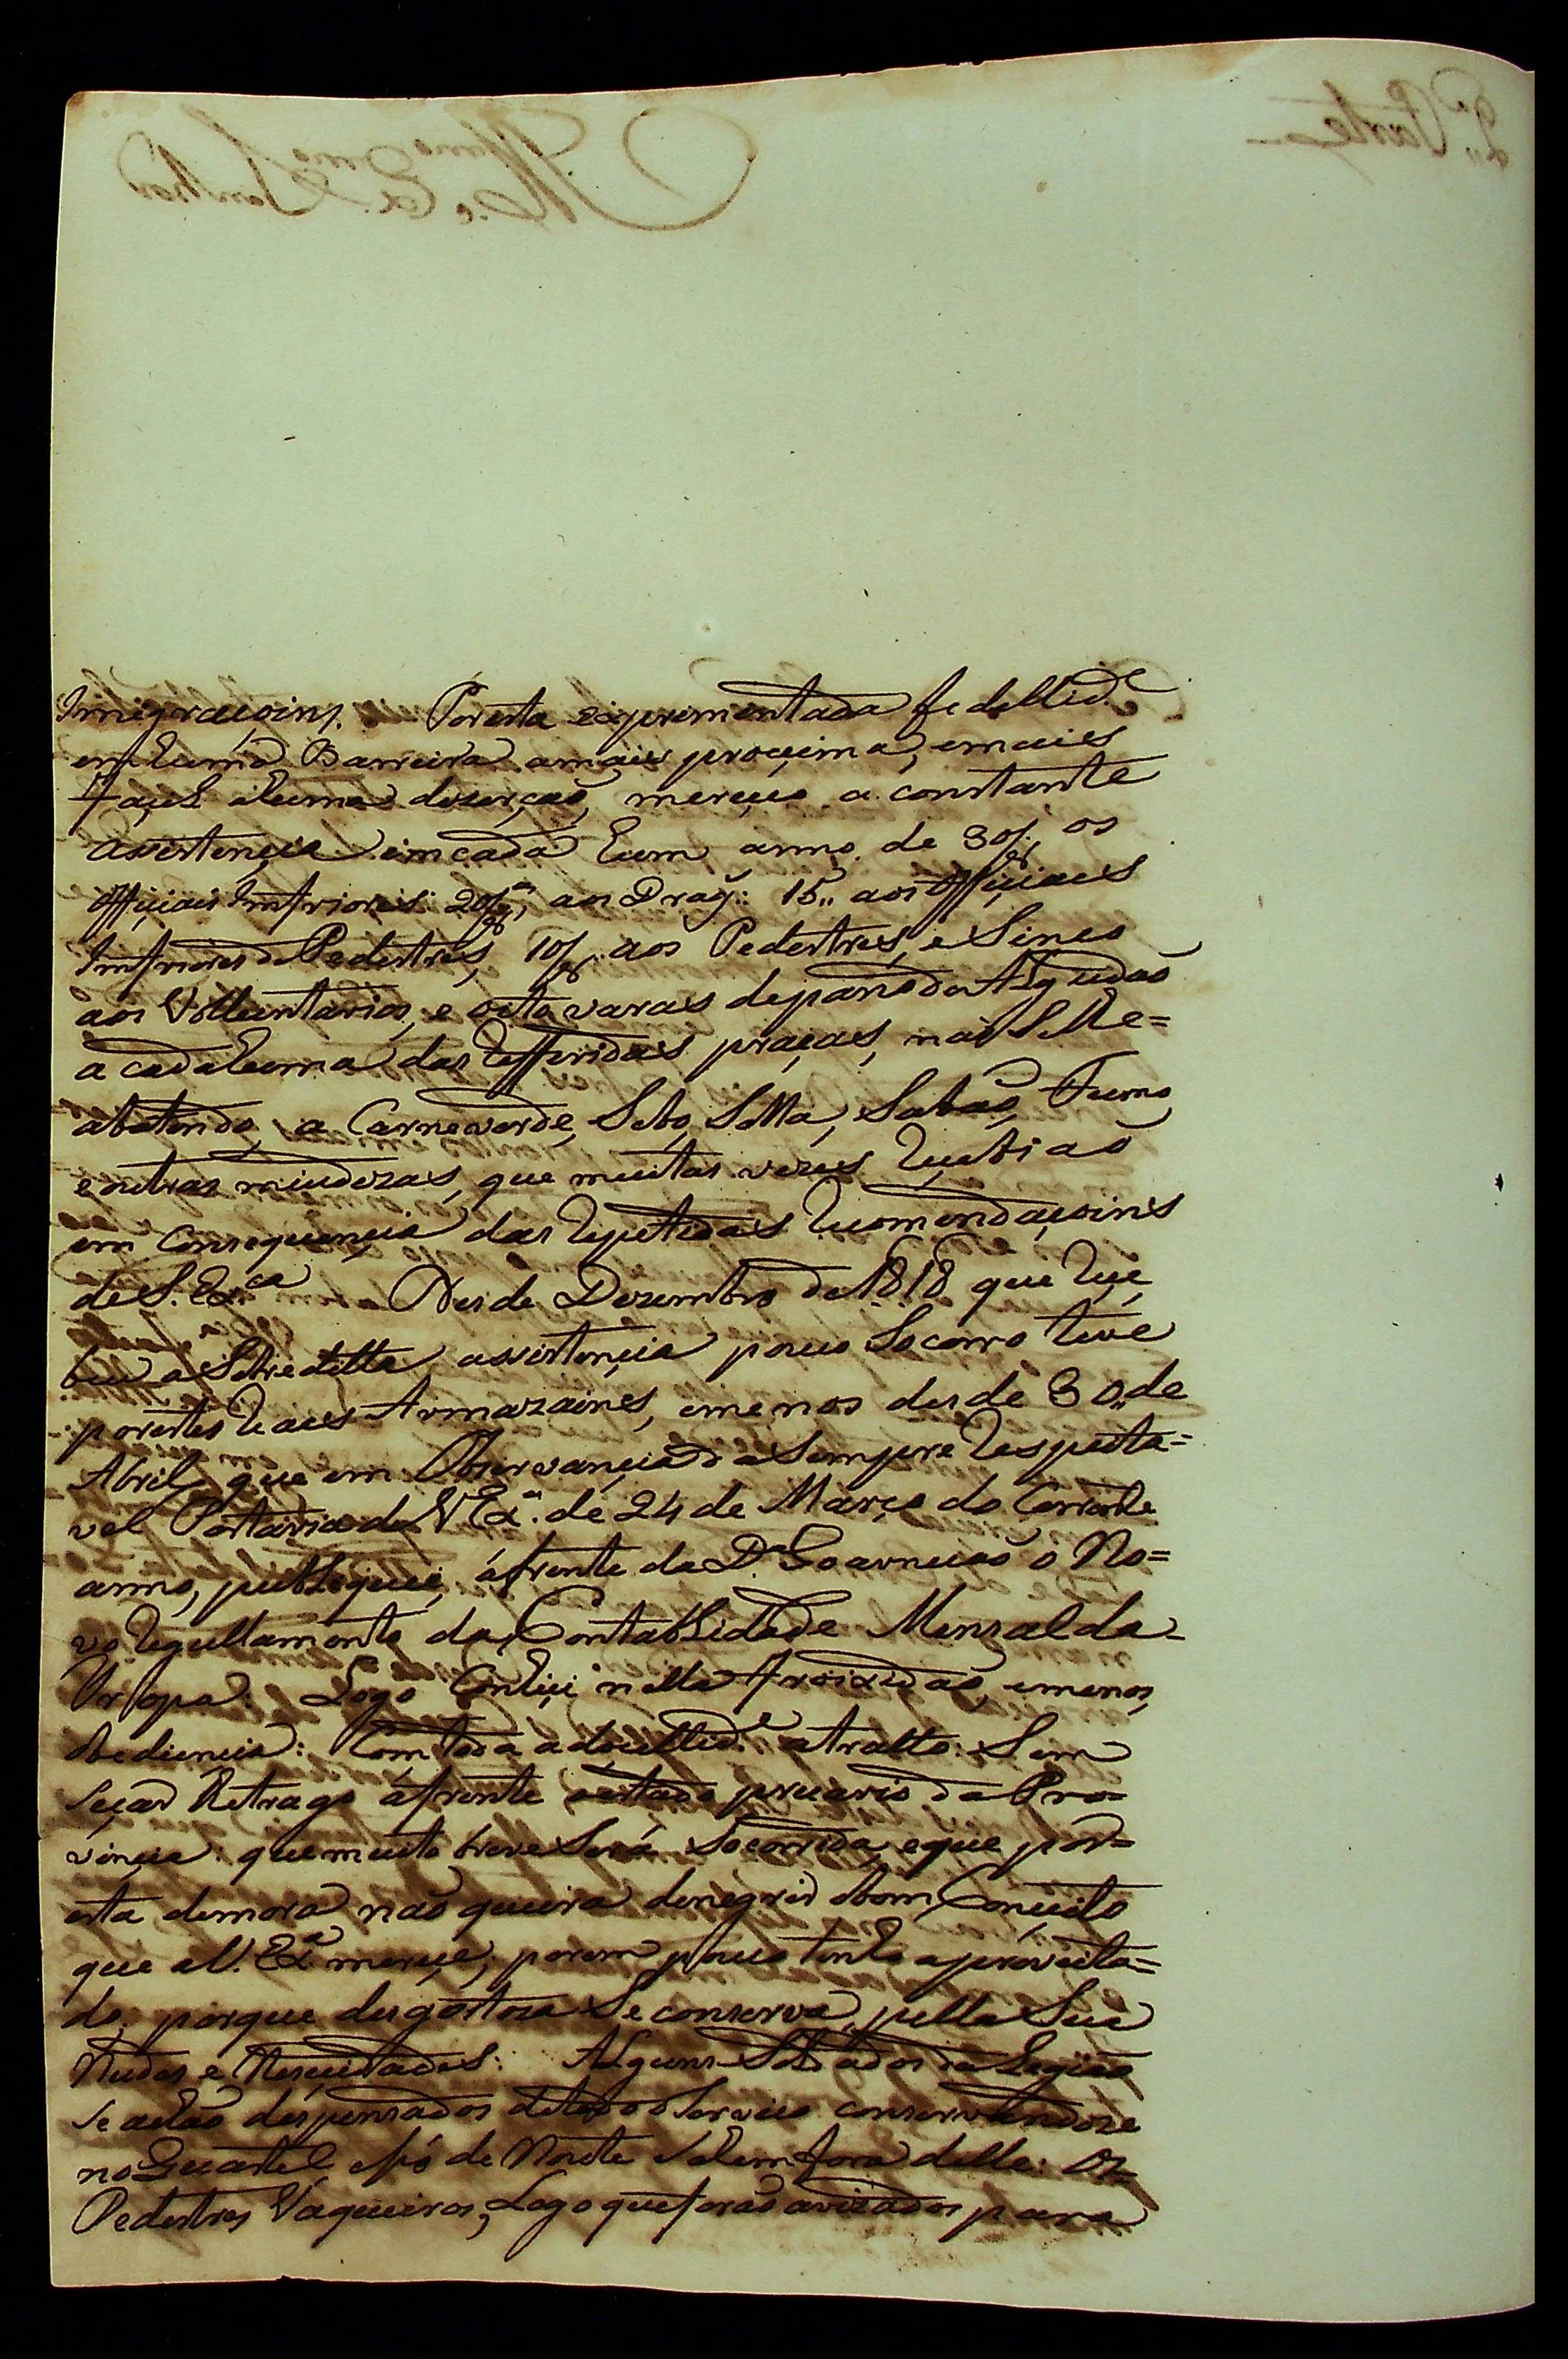 Por esta exprementada fedellid.e
em huma Barreira amais proçima, emais
façel áhuma dezerçaõ, mereçeo a constante
Asistençia emcada hum anno de 30/8.as os
Offiçiais Imfriores 20/8.as aos Drag.: 15,, aos Offiçiaes
Imfriores de Pedestres, 10/8.as aos Pedestres, e Sinco
aos Volluntarios, e oito varas depano da Algudaõ
a cada huma das Refferidas praças, naõ Selhe=
abatendo, a Carneverde, Sebo, Solla, Sabaõ, Fumo
e outras miudezas, que muitas vezes Reçebiaõ
em Consequençia das Repetidas Recomendaçoins
de S. Ex.ca Desde Dezembro de 1818 que Reçe
beu a Sobreditta asistençia pouco Socorro teve
porestes Reaes Armazaines, emenos desde 30,, de
Abril, que em Observançia da Sempre Respeita=
vel Portaria de V Ex.a de 24 de Março do Corrente
anno, publiquei, áfrente da D.a Goarniçaõ o No=
vo Regullamento da Contabelidade Mensal da
Tropa: Logo Conheçi nella froixidaõ, emenos
obediençia: Com toda a doçellid.e atratto: Sem
Seçar Retrago áfrente oestado precario da Pro=
vinçia: quemuito breve Será Socorrida, eque por=
esta demora naõ queira denegrir obom Conçeito
que aV. Ex.a mereçe; porem pouco tenho aproveita=
do; porque desgostosa Se conserva, pella Sua
Nudes e Nesçeidades: Alguns Soldados da Legiaõ
Se achaõ despensados detodo o Serviço conservandose
no Quartel, esó de Noute Sahem fora delle: Os
Pedestres Vaqueiros, Logo queforaõ avizados para